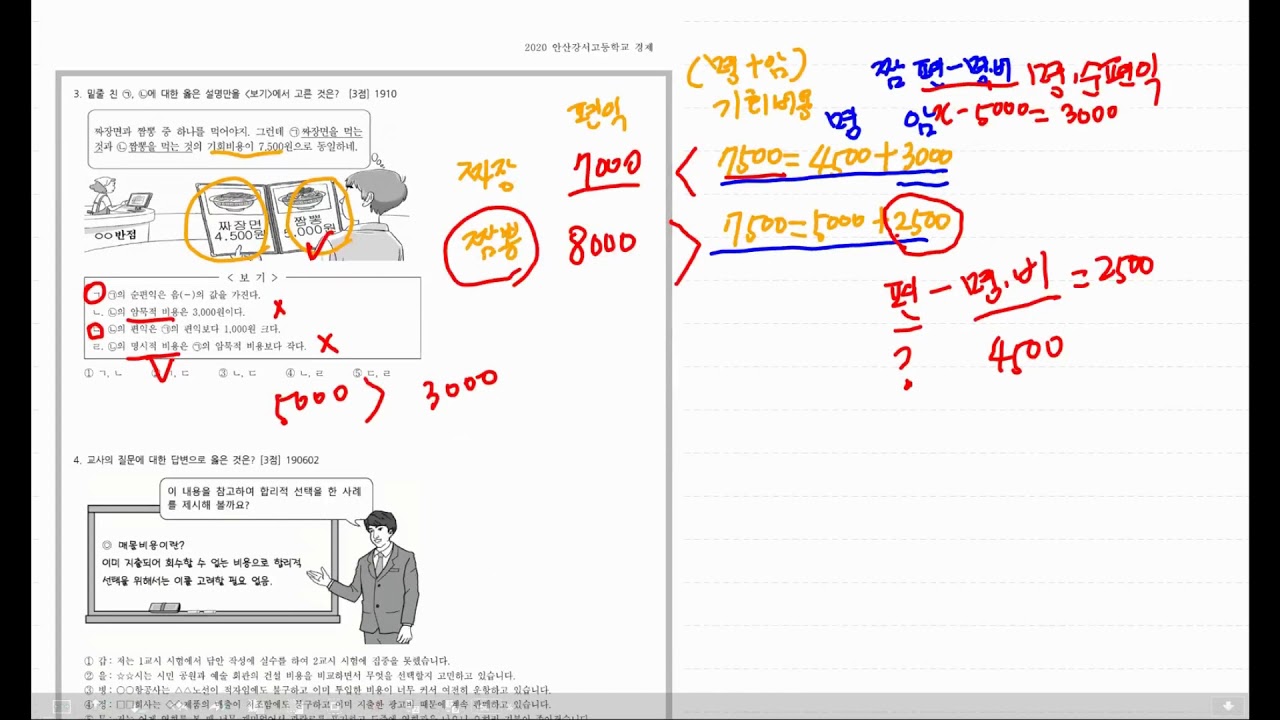 2020 안산강서고등학교 경제
3. 밑줄 친 ㉠, ㉡에 대한 옳은 설명만을 <보기>에서 고른 것은? [3점] 1910
짜장면과 짬뽕 중 하나를 먹어야지. 그런데 ㉠ 짜장면을 먹는
것과 ㉡ 짬뽕을 먹는 것의 기회비용이 7,500원으로 동일하네.
짜장면
4,500원
짬뽕
5,000원
○○반점
< 보 기 >
ㄱ. ㉠의 순편익은 음(-)의 값을 가진다.
ㄴ. ㉡의 암묵적 비용은 3,000원이다.
ㄷ. ㉡의 편익은 ㉠의 편익보다 1,000원 크다.
ㄹ. ㉡의 명시적 비용은 ㉠의 암묵적 비용보다 작다.
① ㄱ, ㄴ ② ㄱ, ㄷ ③ ㄴ, ㄷ ④ ㄴ, ㄹ ⑤ ㄷ, ㄹ
5000 > 3000
편익
짜장 7000 <
짬뽕 8000 >
(명+암)
기회비용
짬 편-명.비
명.순편익
x-5000=3000
명 암
7500=4500+3000
7500=5000+2500
편-명.비=2500
? 4500
4. 교사의 질문에 대한 답변으로 옳은 것은? [3점] 190602
이 내용을 참고하여 합리적 선택을 한 사례
를 제시해 볼까요?
◎ 매몰비용이란?
이미 지출되어 회수할 수 없는 비용으로 합리적
선택을 위해서는 이를 고려할 필요 없음.
① 갑 : 저는 1교시 시험에서 답안 작성에 실수를 하여 2교시 시험에 집중을 못했습니다.
② 을 : ☆☆시는 시민 공원과 예술 회관의 건설 비용을 비교하면서 무엇을 선택할지 고민하고 있습니다.
③ 병 : ○○항공사는 △△노선이 적자임에도 불구하고 이미 투입한 비용이 너무 커서 여전히 운항하고 있습니다.
④ 정 : □□회사는 ◇◇제품의 매출이 저조함에도 불구하고 이미 지출한 광고비 때문에 계속 판매하고 있습니다.